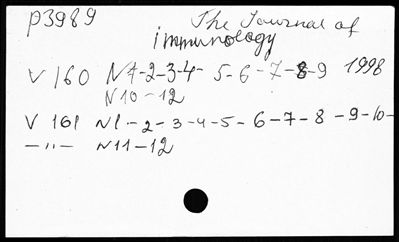 p3989 The Journal of
immunology
V 160 N1-2-3-4- 5-6-7-8-9 1998
N10-12
V 161 N1-2-3-4-5-6-7-8-9-10-
-"- N11-12